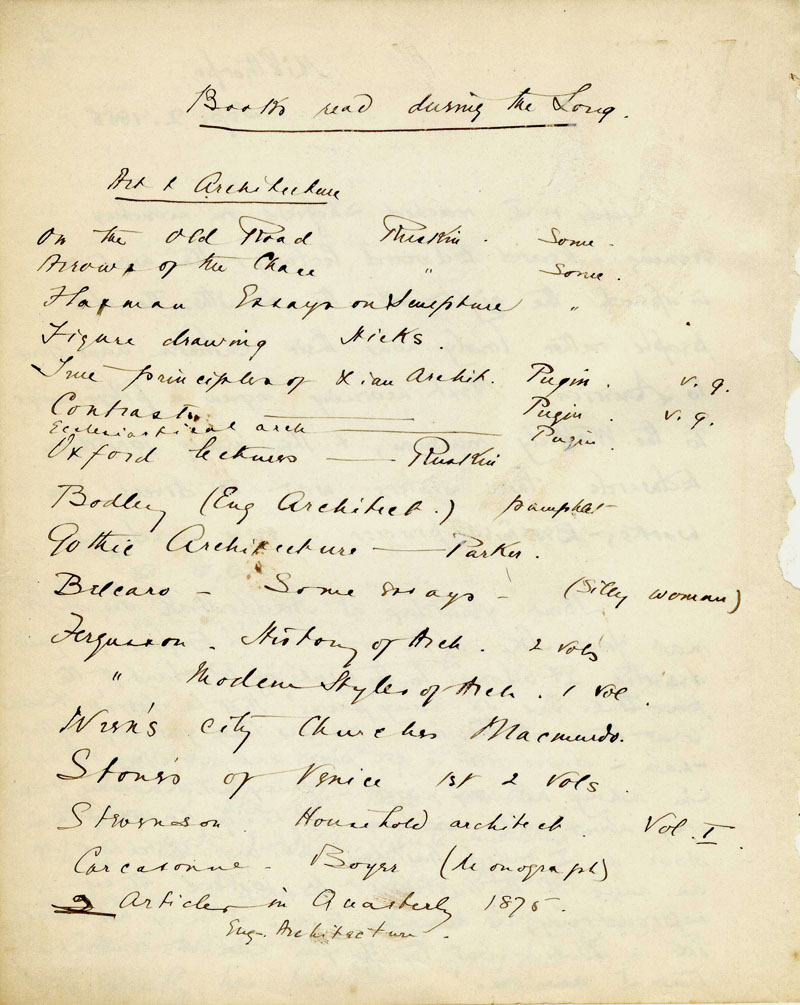 Books read during the Long.
Art & Architecture
On the Old Road Ruskin. Some.
Arrows of the Chace " Some.
Flaxman Essays on Sculpture "
Figure drawing Hicks.
True principles of Xian Archit. Pugin. v. g.
Contrasts — Pugin. v. g.
Ecclesiastical arch — Pugin.
Oxford lectures — Ruskin
Bodley (Eng Architect.) pamphlet
Gothic Architecture — Parker.
Belcaro – Some essays – (Silly woman)
Fergusson. History of Arch. 2 vols
" Modern Styles of Arch. 1 vol.
Wren's City Churches Macmurdo.
Stones of Venice 1st 2 Vols.
Stevenson. Household architect. Vol. I.
Carcasonne – Boyer (Monograph)
2 Articles in Quarterly 1875.
Eng. Architecture.